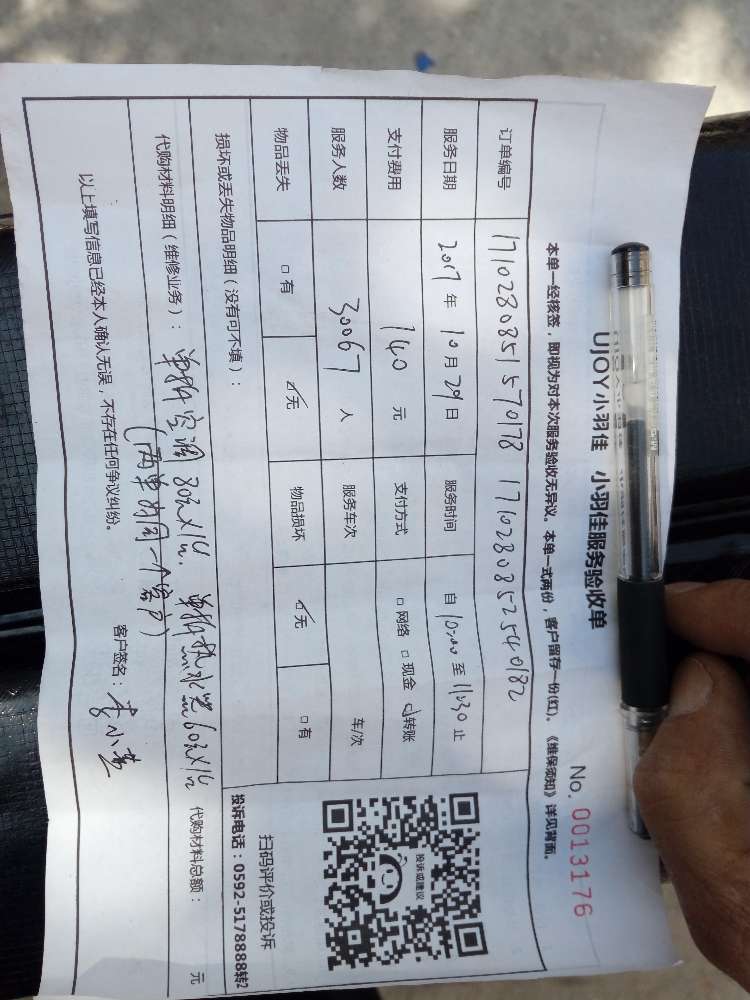 UJOY小羽佳 小羽佳服务验收单
No. 0013176
本单一经核签，即视为对本次服务验收无异议。本单一式两份，客户留存一份(红)。《维保须知》详见背面。
订单编号 1710280851570178 1710280852540182
服务日期 2017年10月29日 服务时间 自10:00至11:30止
支付费用 140元 支付方式 □网络 □现金 ☑转账
服务人数 30067人 服务车次 车/次
物品丢失 □有 ☑无 物品损坏 ☑无 □有
损坏或丢失物品明细（没有可不填）：
代购材料明细（维修业务）： 单拆空调80元X1台. 单拆热水器60元X1台 代购材料总额： 元
（两单为同一个客户）
以上填写信息已经本人确认无误，不存在任何争议纠纷。
客户签名： 李小燕
投诉或建议
扫码评价或投诉
投诉电话：0592-5178888转2